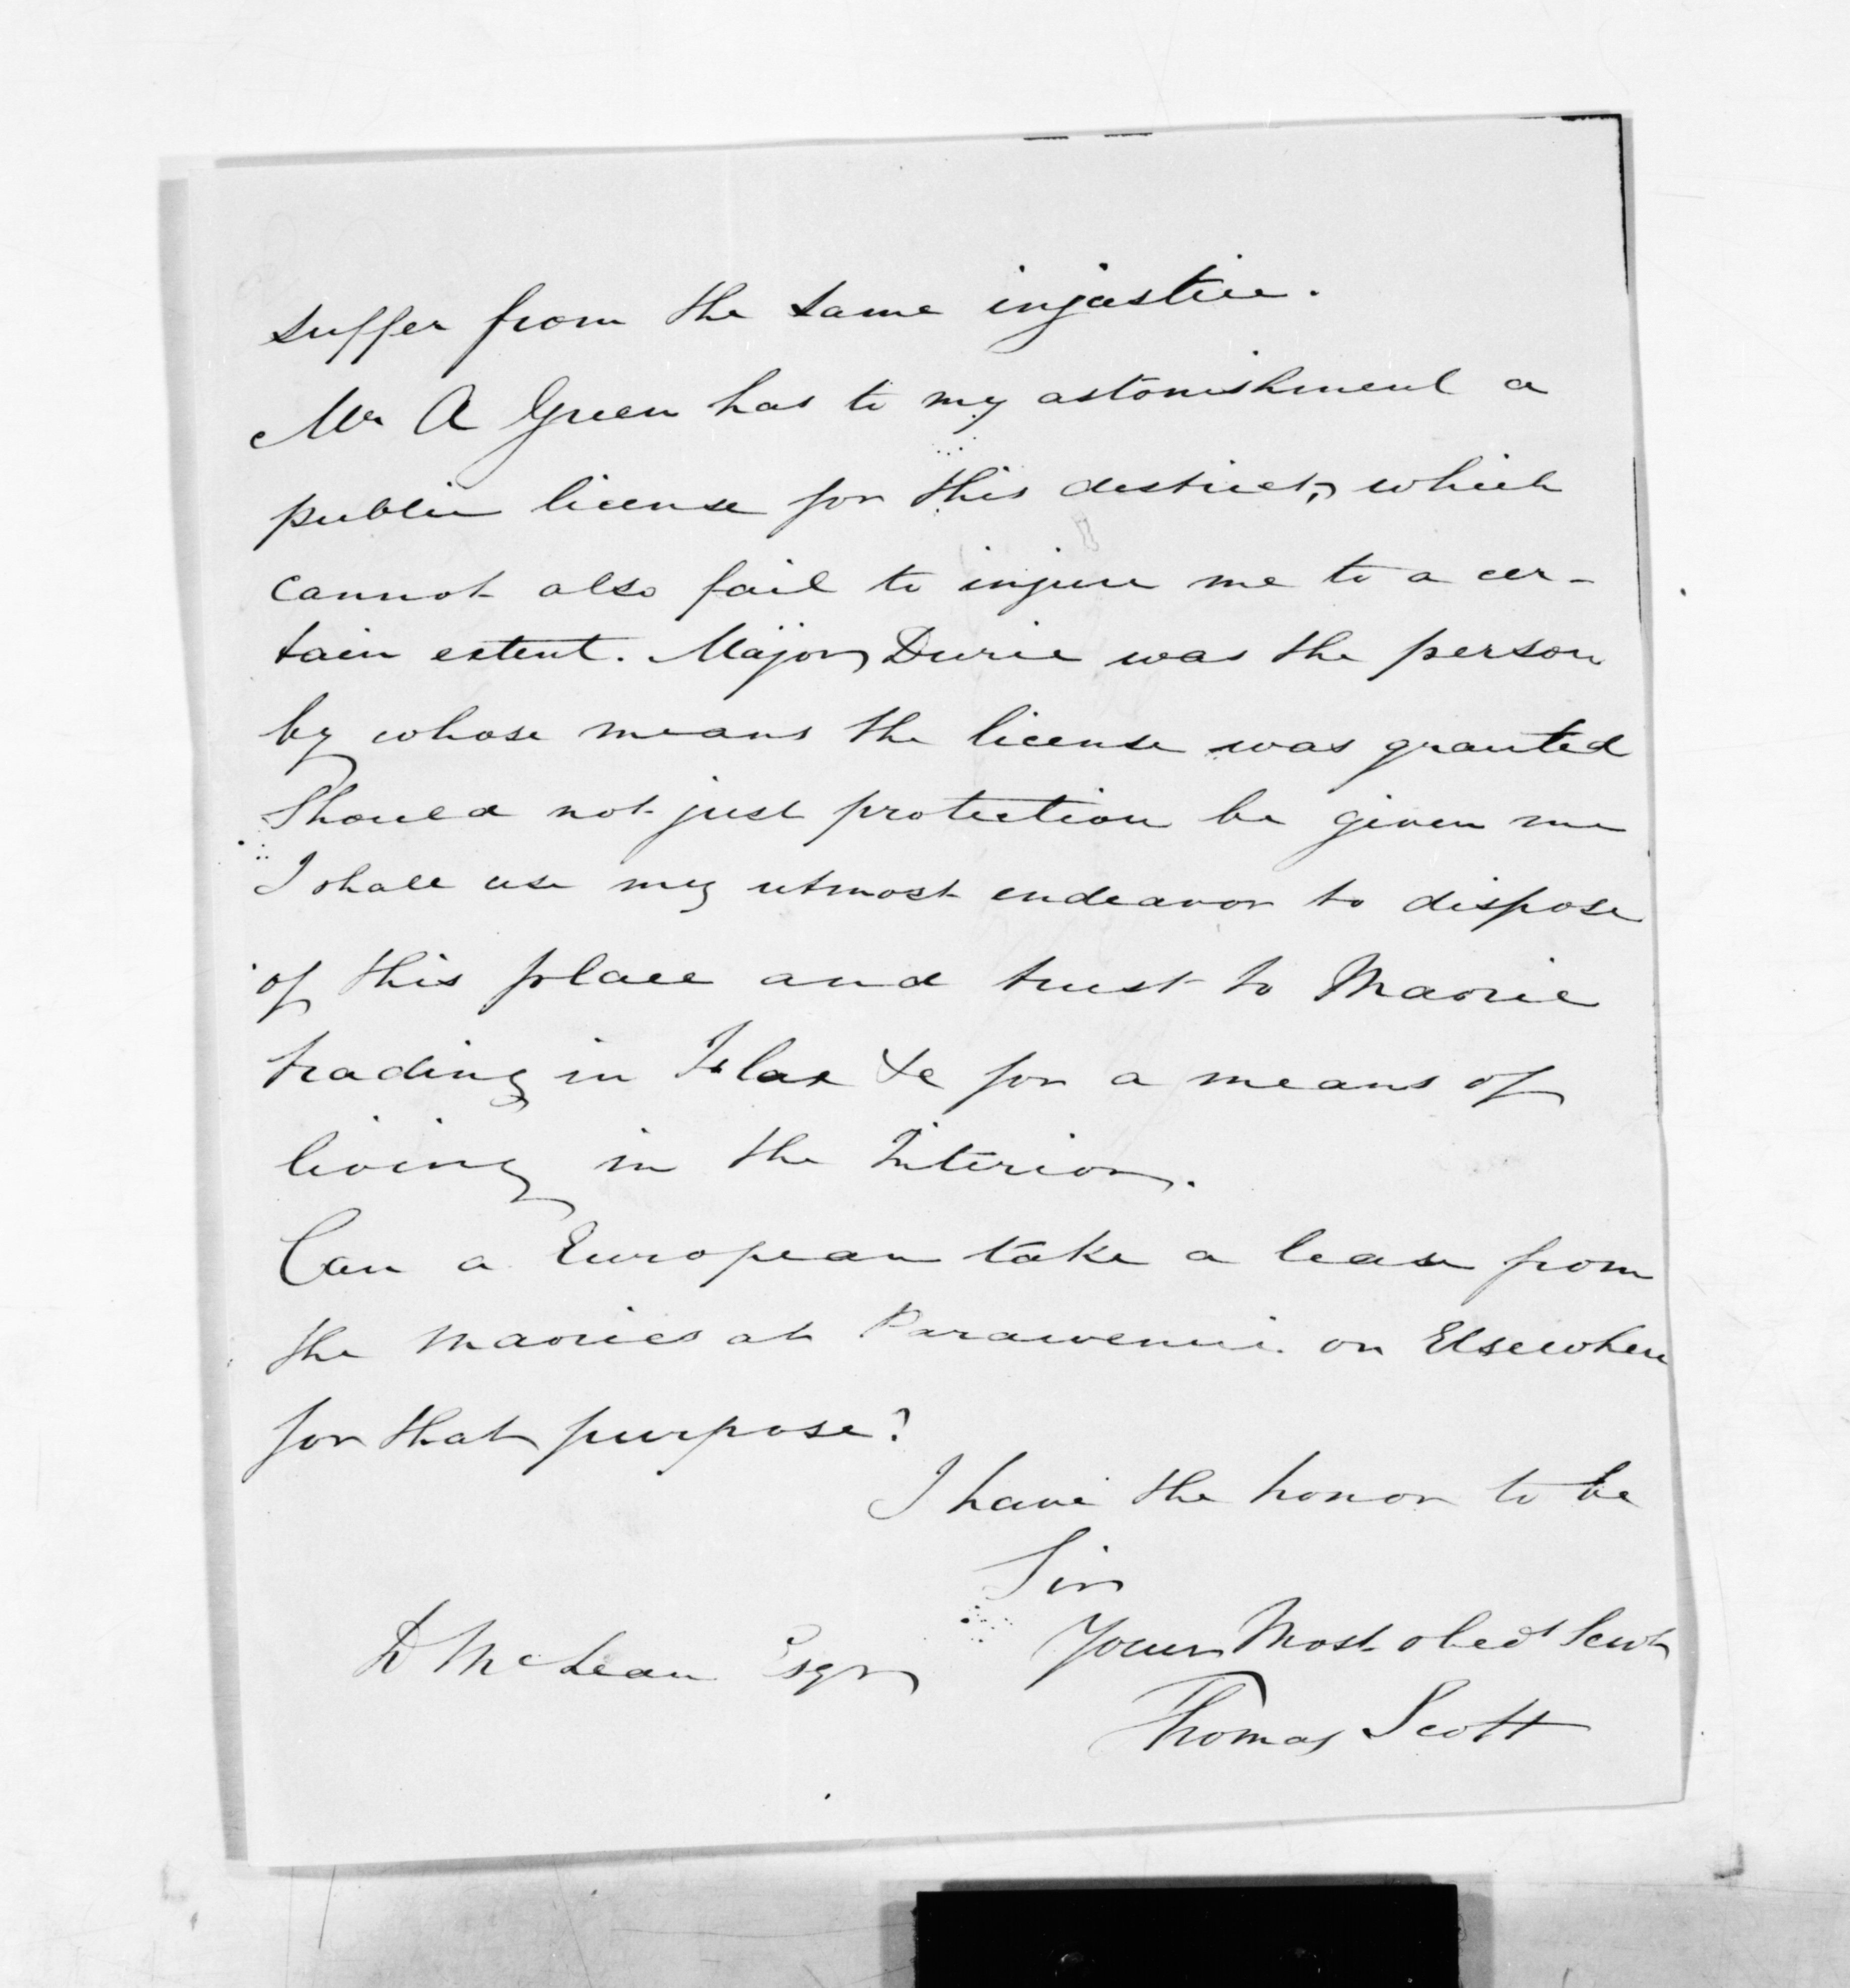 suffer from the same injustice.
Mr A Green has to my astonishment a
public license for this district, which
cannot also fail to injure me to a cer-
tain extent. Major Durie was the person
by whose means the license was granted
Should not just protection be given me
I shall use my utmost endeavor to dispose
of this place and trust to Maorie
trading in Flax &c for a means of
living in the Interior.
Can a European take a lease from
the Maories at Parawenui or Elsewhere
for that purpose?
I have the honor to be
Sir
Your Most obedt Servt
D McLean Esqr
Thomas Scott